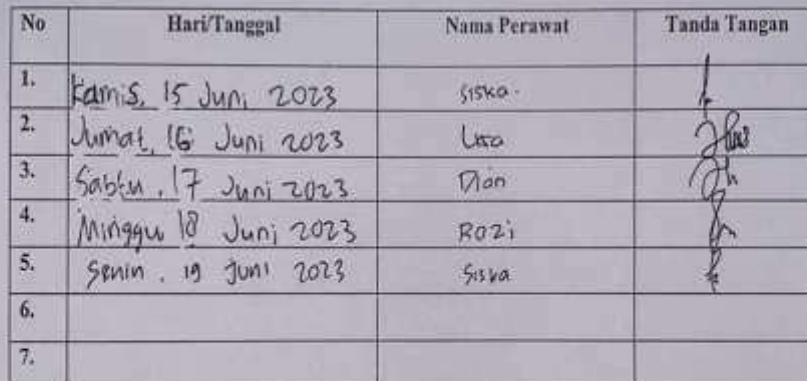 No Hari/Tanggal Nama Perawat Tanda Tangan
1. Kamis, 15 Juni 2023 Siska.
2. Jumat, 16 Juni 2023
3. Sabtu, 17 Juni 2023 Dion
4. Minggu 18 Juni 2023 Rozi
5. Senin, 19 Juni 2023 Siska
6.
7.